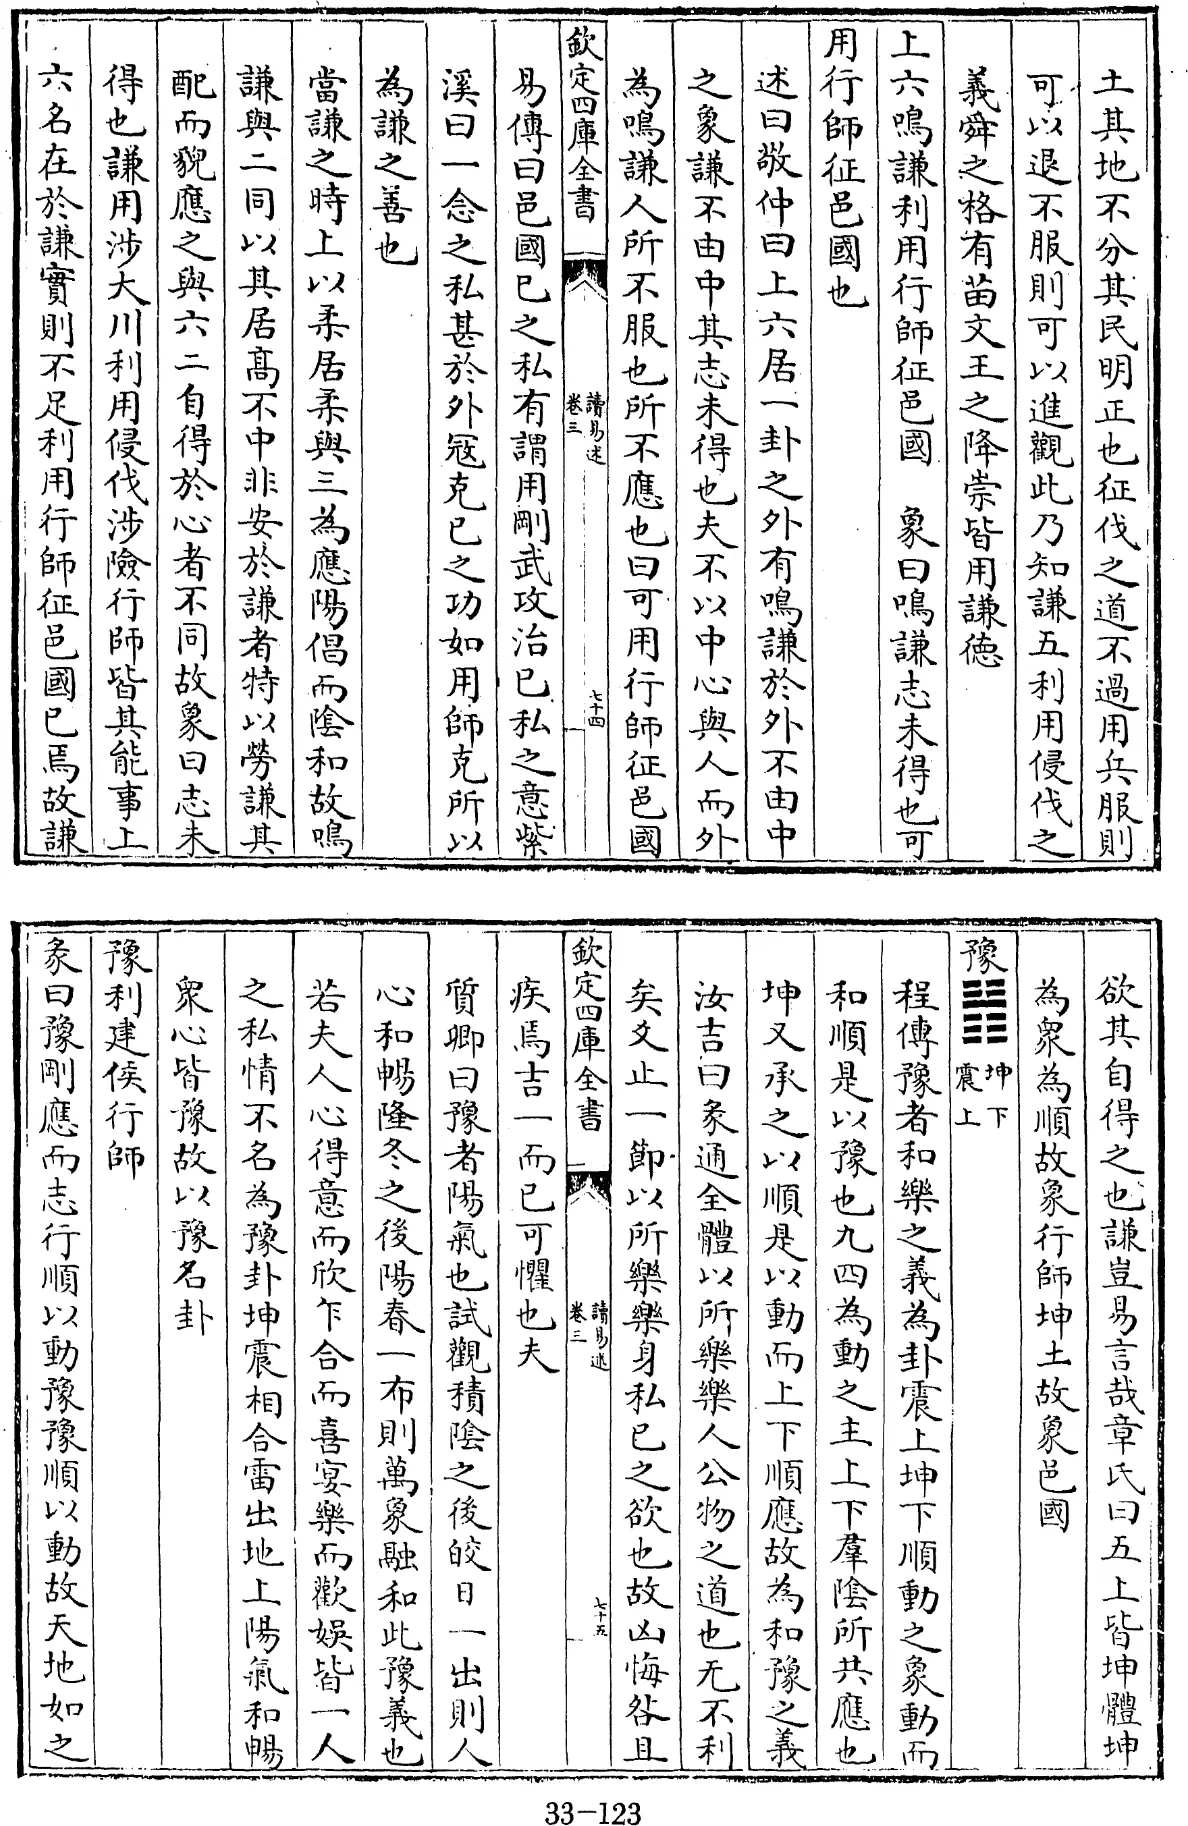 土其地不分其民明正也征伐之道不過用兵服則
可以退不服則可以進觀此乃知謙五利用侵伐之
義舜之格有苗文王之降崇皆用謙德
上六鳴謙利用行師征邑國　象曰鳴謙志未得也可
用行師征邑國也
述曰敬仲曰上六居一卦之外有鳴謙於外不由中
之象謙不由中其志未得也夫不以中心與人而外
為鳴謙人所不服也所不應也曰可用行師征邑國
欽定四庫全書　讀易述　卷三　七十四
易傳曰邑國已之私有謂用剛武攻治已私之意紫
溪曰一念之私甚於外冦克已之功如用師克所以
為謙之善也
當謙之時上以柔居柔與三為應陽倡而隂和故鳴
謙與二同以其居髙不中非安於謙者特以勞謙其
配而貌應之與六二自得於心者不同故象曰志未
得也謙用涉大川利用侵伐涉險行師皆其能事上
六名在於謙實則不足利用行師征邑國已焉故謙
欲其自得之也謙豈易言哉章氏曰五上皆坤體坤
為衆為順故象行師坤土故象邑國
豫䷏坤下震上
程傳豫者和樂之義為卦震上坤下順動之象動而
和順是以豫也九四為動之主上下羣隂所共應也
坤又承之以順是以動而上下順應故為和豫之義
汝吉曰彖通全體以所樂樂人公物之道也无不利
矣爻止一節以所樂樂身私已之欲也故凶悔咎且
欽定四庫全書　讀易述　卷三　七十五
疾焉吉一而已可懼也夫
質卿曰豫者陽氣也試觀積隂之後皎日一出則人
心和暢隆冬之後陽春一布則萬象融和此豫義也
若夫人心得意而欣乍合而喜宴樂而歡娱皆一人
之私情不名為豫卦坤震相合雷出地上陽氣和暢
衆心皆豫故以豫名卦
豫利建侯行師
彖曰豫剛應而志行順以動豫豫順以動故天地如之
33-123